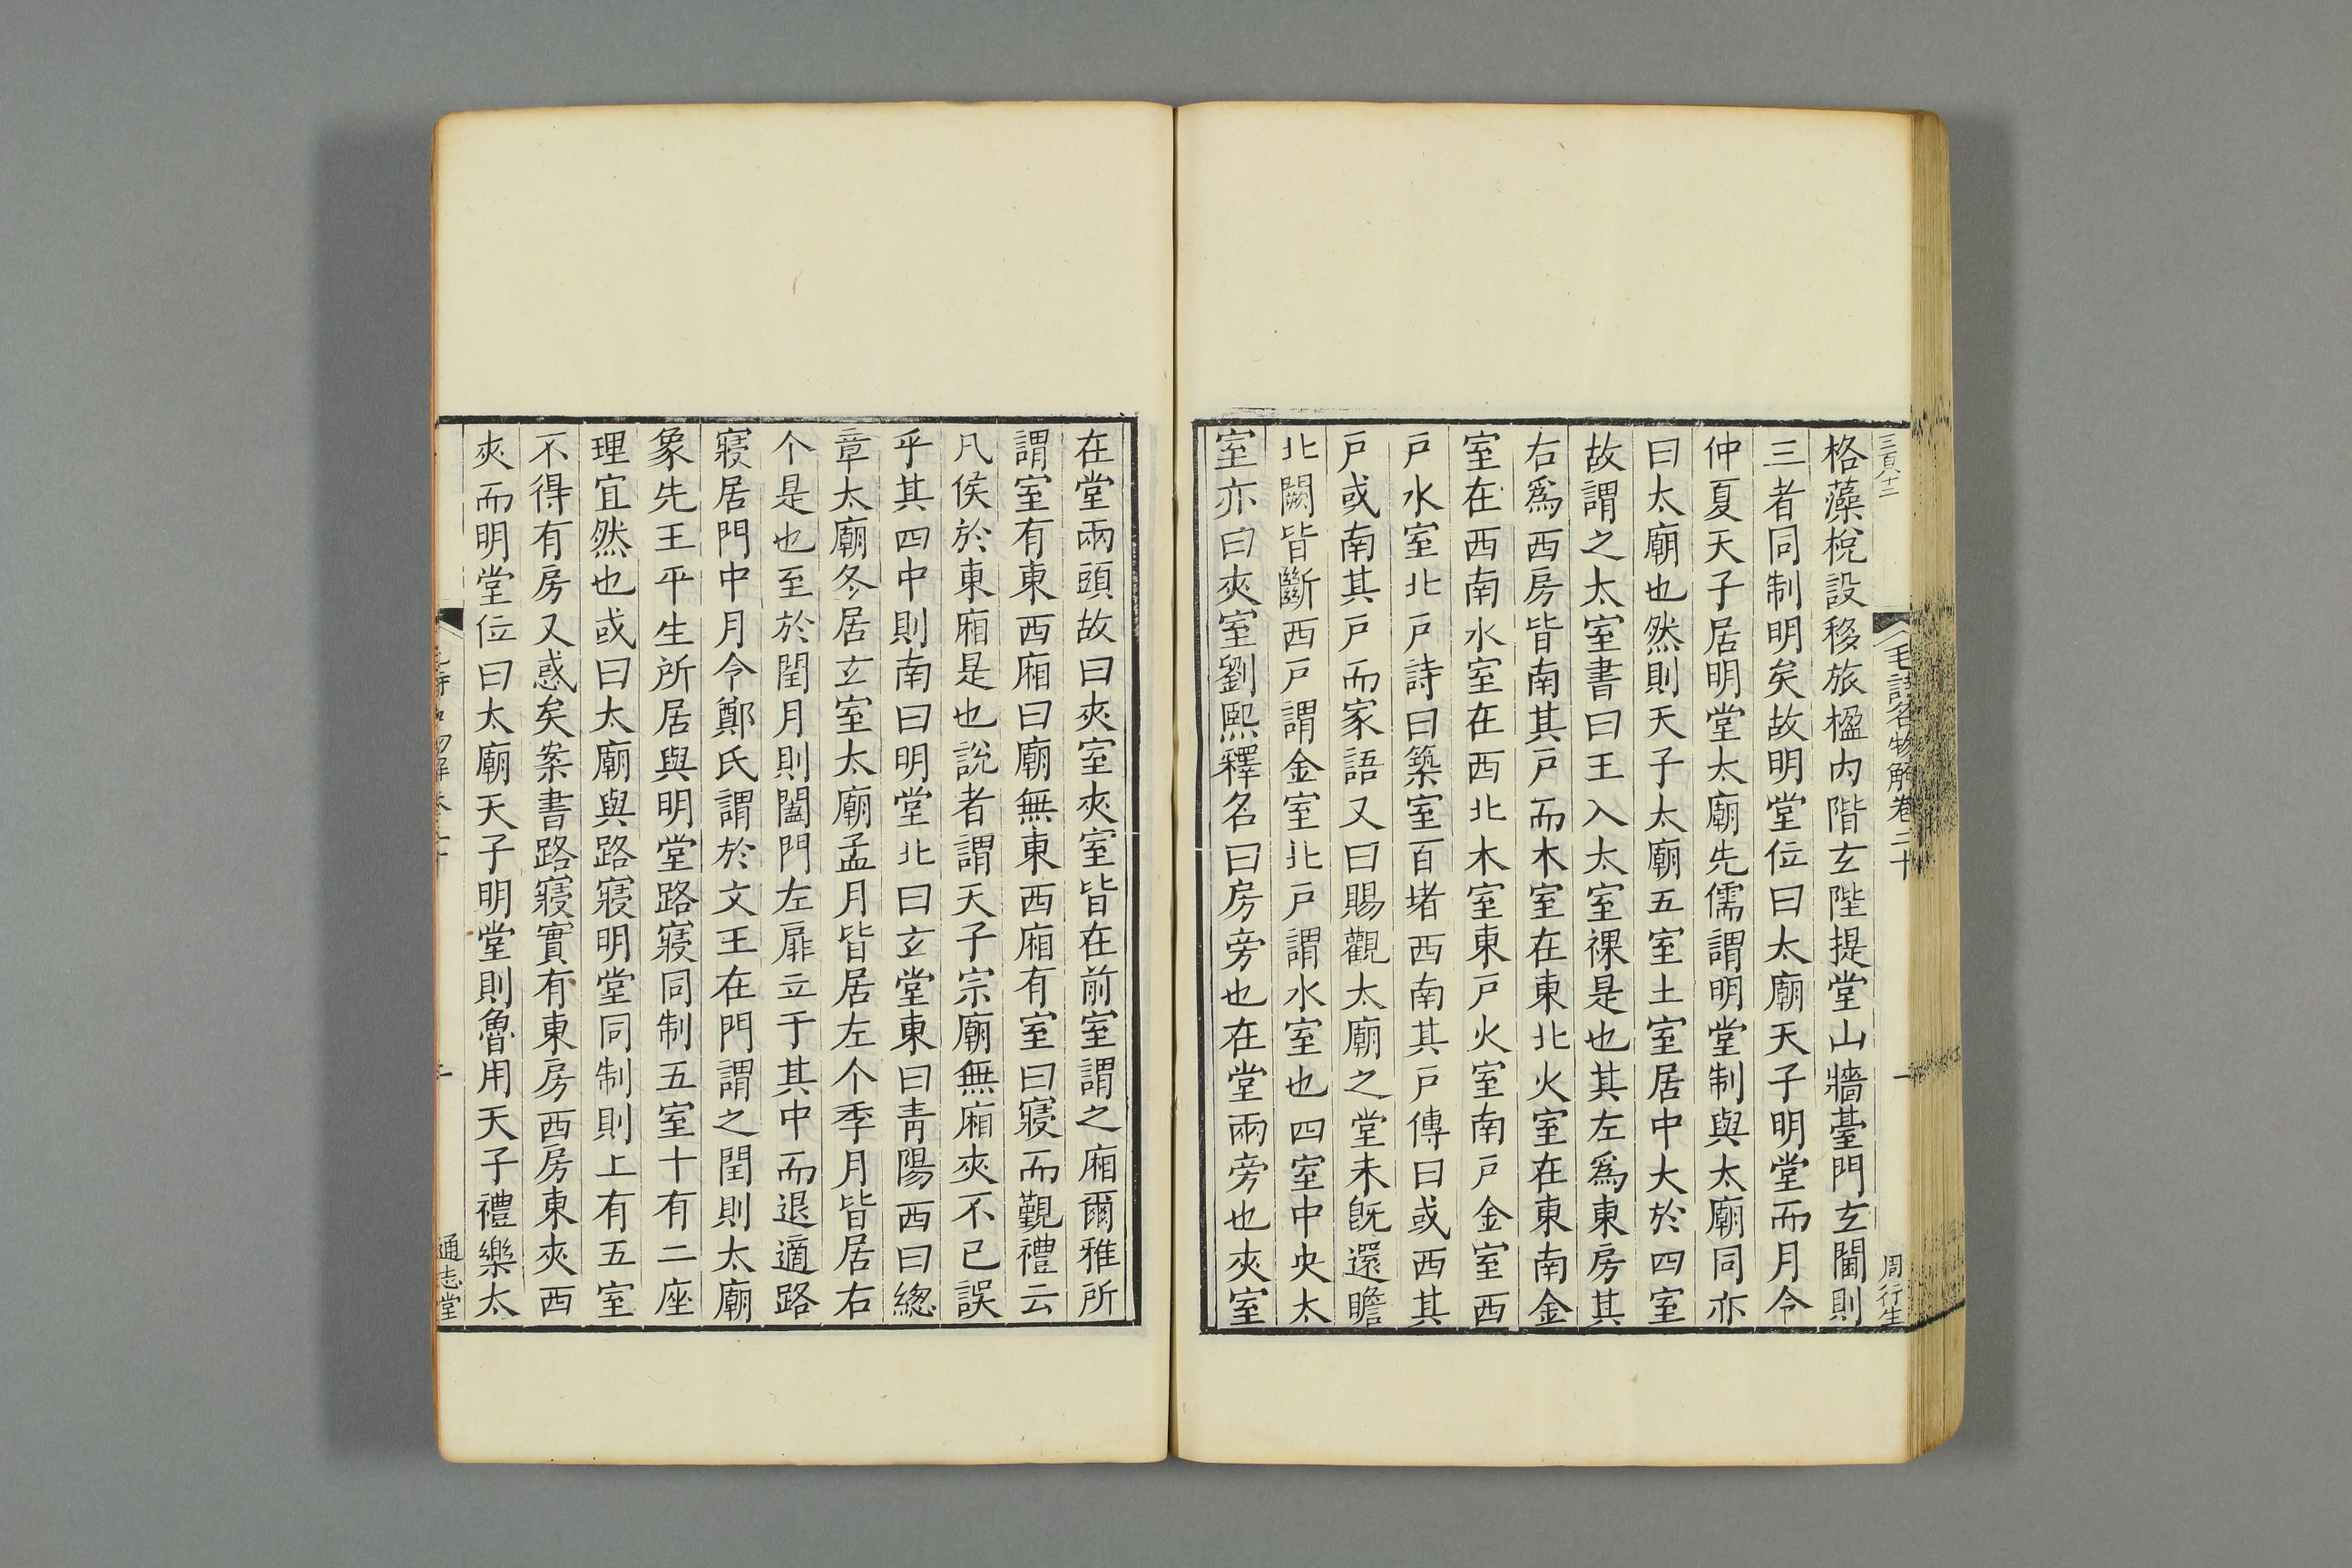 三百八十二
毛詩名物解卷二十
一
周行生
格藻梲設移旅楹内階玄陛提堂山牆臺門玄閫則
三者同制明矣故明堂位曰太廟天子明堂而月令
仲夏天子居明堂太廟先儒謂明堂制與太廟同亦
曰太廟也然則天子太廟五室土室居中大於四室
故謂之太室書曰王入太室祼是也其左爲東房其
右爲西房皆南其戸而木室在東北火室在東南金
室在西南水室在西北木室東戸火室南戸金室西
戸水室北戸詩曰築室百堵西南其戸傳曰或西其
戸或南其戸而家語又曰賜觀太廟之堂未旣還瞻
北闕皆斷西戸謂金室北戸謂水室也四室中央太
室亦曰夾室劉熙釋名曰房旁也在堂兩旁也夾室
在堂兩頭故曰夾室夾室皆在前室謂之廂爾雅所
謂室有東西廂曰廟無東西廂有室曰寢而覲禮云
几俟於東廂是也說者謂天子宗廟無廂夾不已誤
乎其四中則南曰明堂北曰玄堂東曰青陽西曰緫
章太廟冬居玄室太廟孟月皆居左个季月皆居右
个是也至於閏月則闔門左扉立于其中而退適路
寢居門中月令鄭氏謂於文王在門謂之閏則太廟
象先王平生所居與明堂路寢同制五室十有二座
理宜然也或曰太廟與路寢明堂同制則上有五室
不得有房又惑矣案書路寢實有東房西房東夾西
夾而明堂位曰太廟天子明堂則魯用天子禮樂太
通志堂